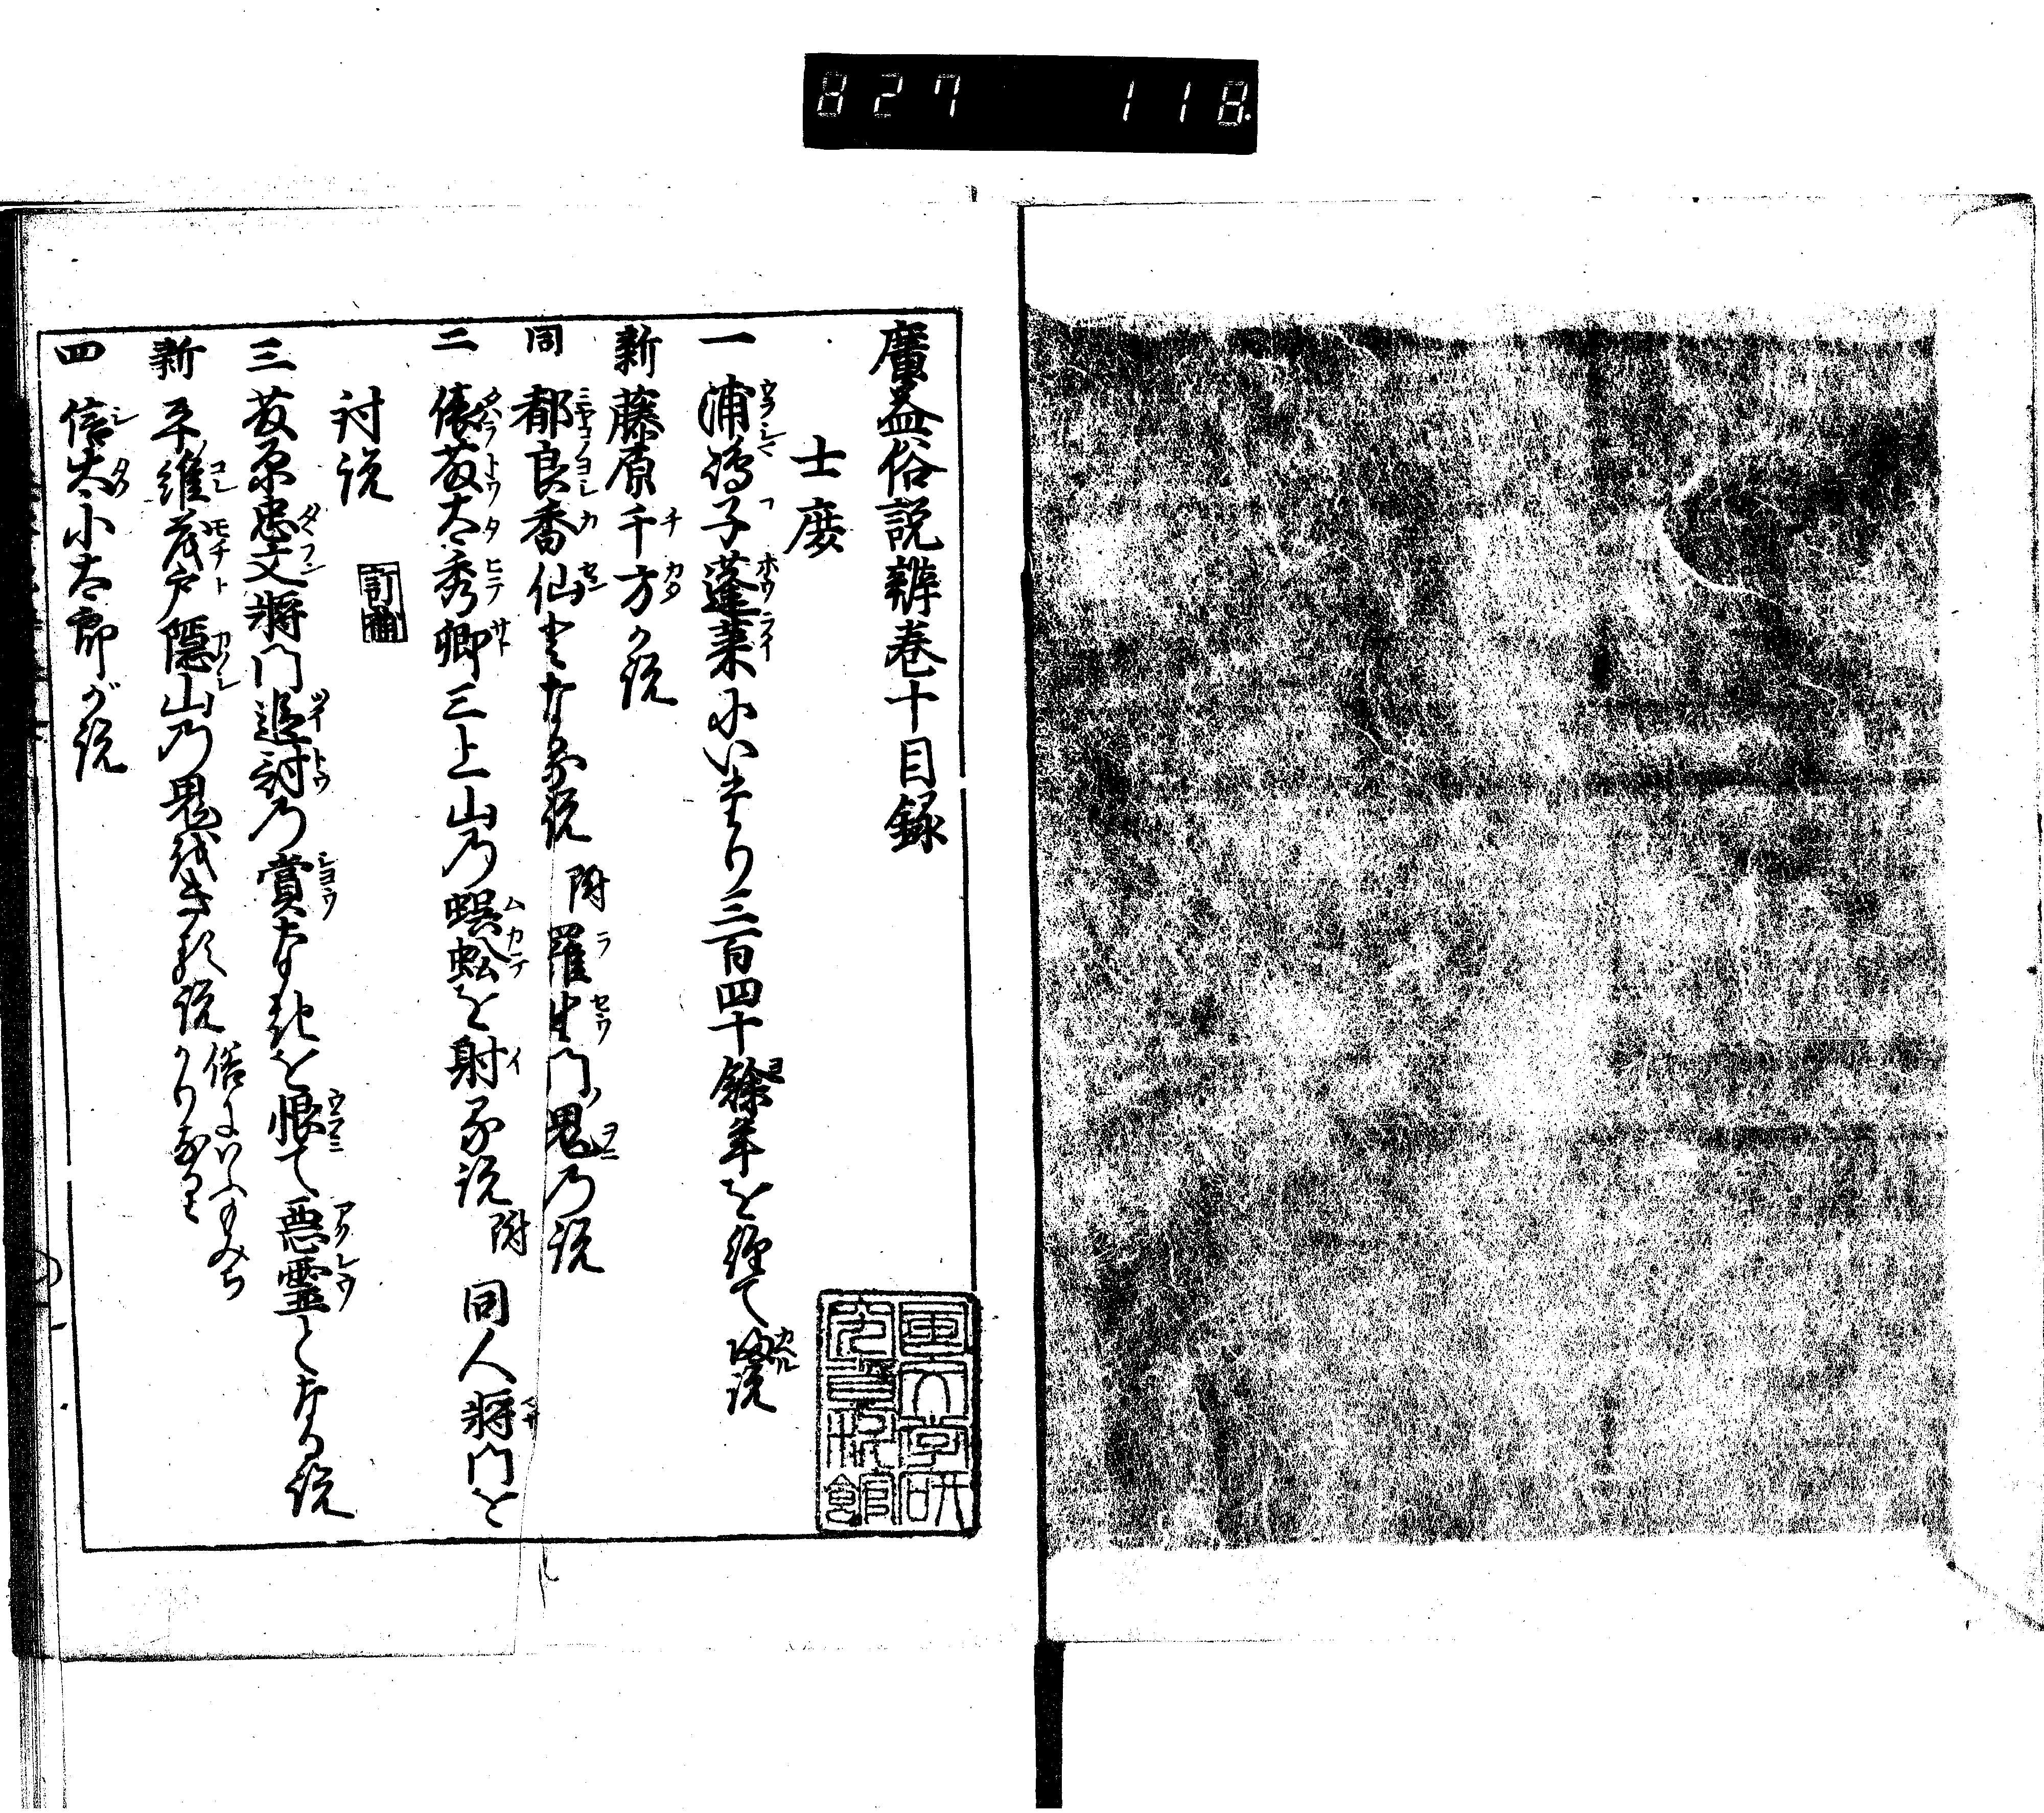 827 118
廣益俗説辨巻十目録
士庶
一 浦嶋子蓬莱にいたり三百四十餘年を経て帰説
新 藤原千方が説
同 都良香仙となる説 附 羅生門の鬼の説
二 俵藤太秀郷三上山の蜈蚣を射る説 附 同人将門を
討説 訂補
三 藤原忠文将門追討の賞なきを恨て悪霊となる説
新 平維茂戸隠山の鬼
四 信太小太郎が説
国文学研
究資料館